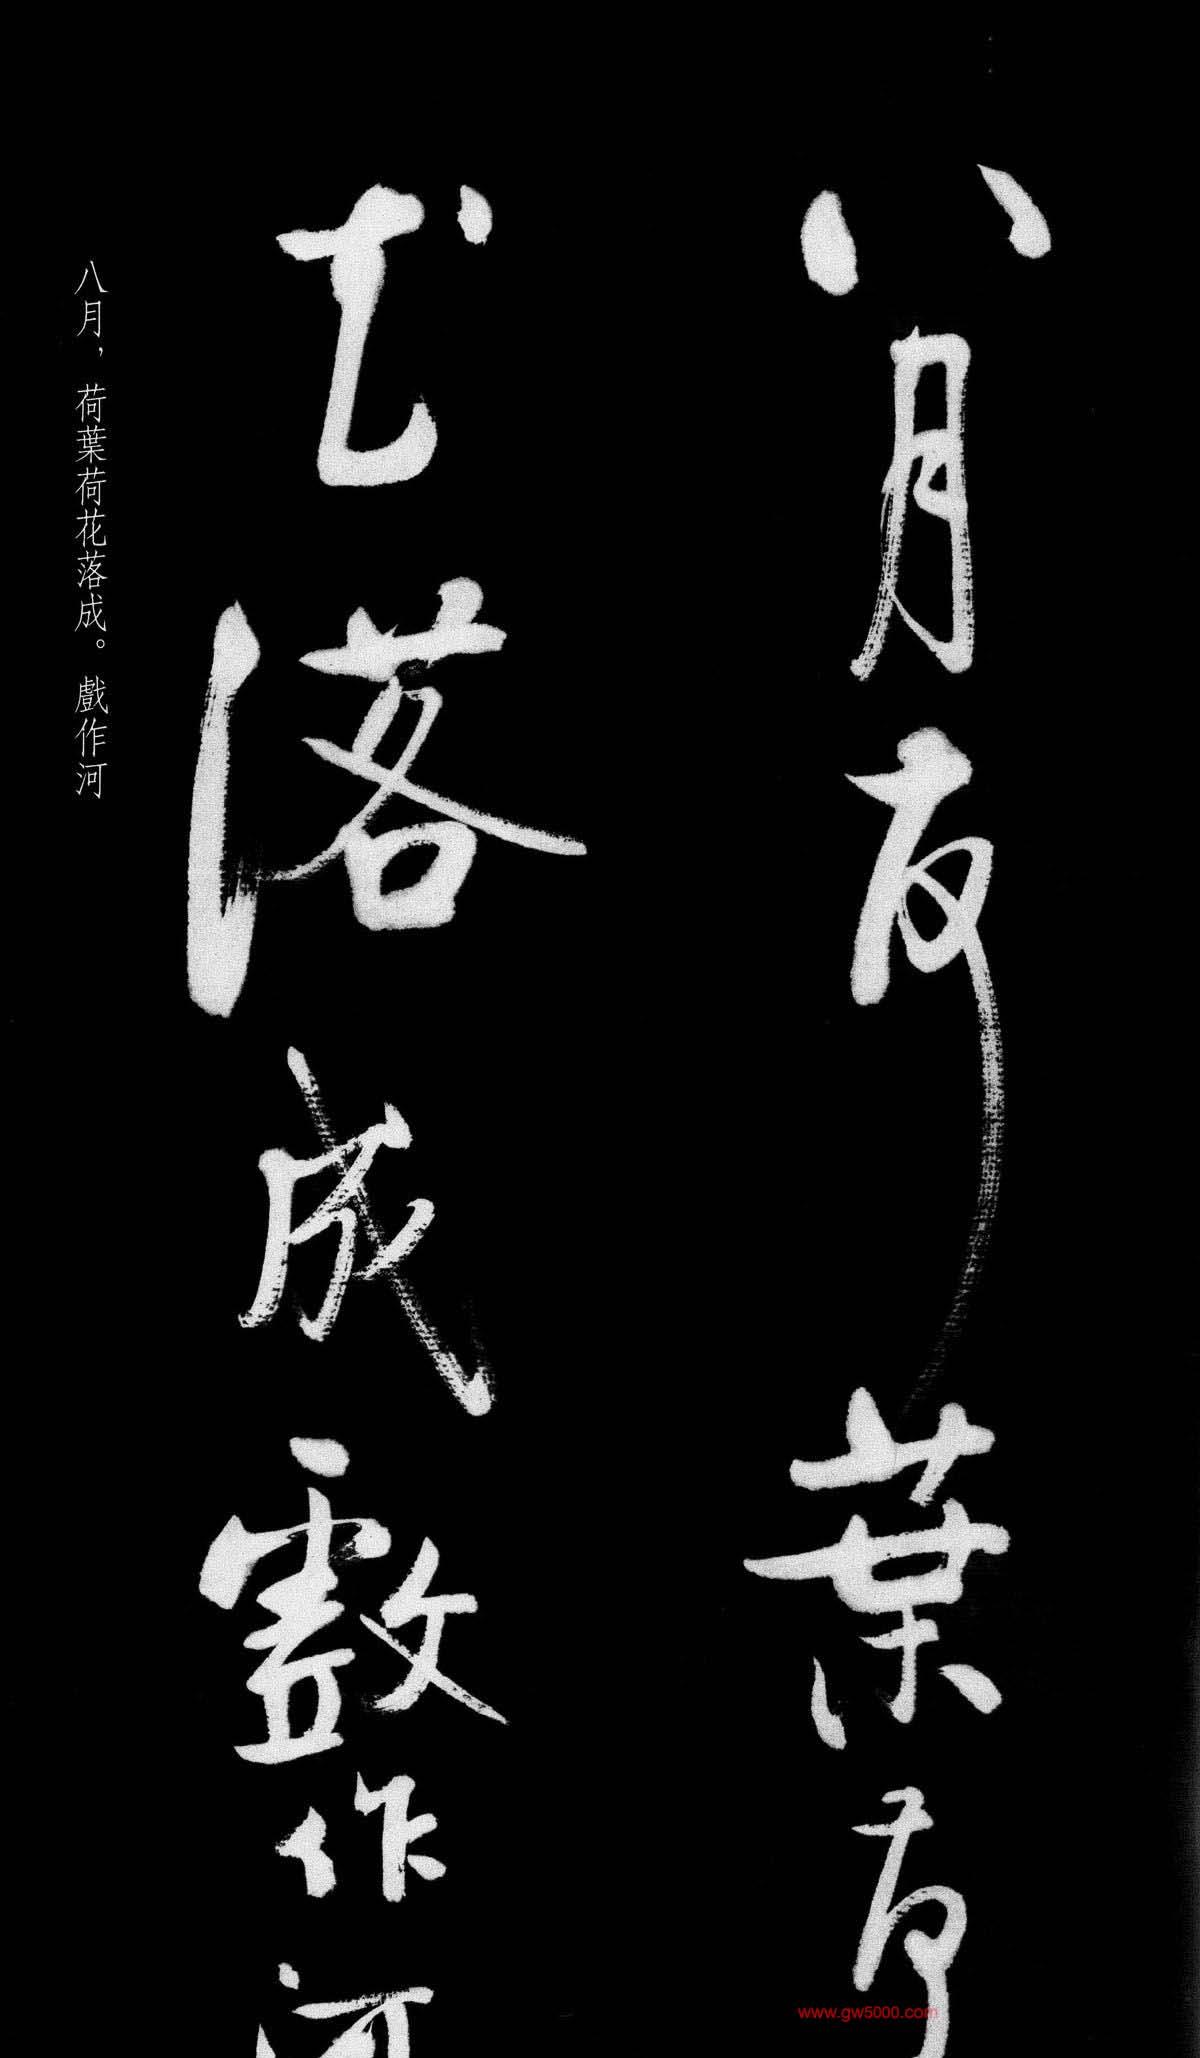 八月荷葉荷
花落成戲作河
八月，荷葉荷花落成。戲作河
www.gw5000.com